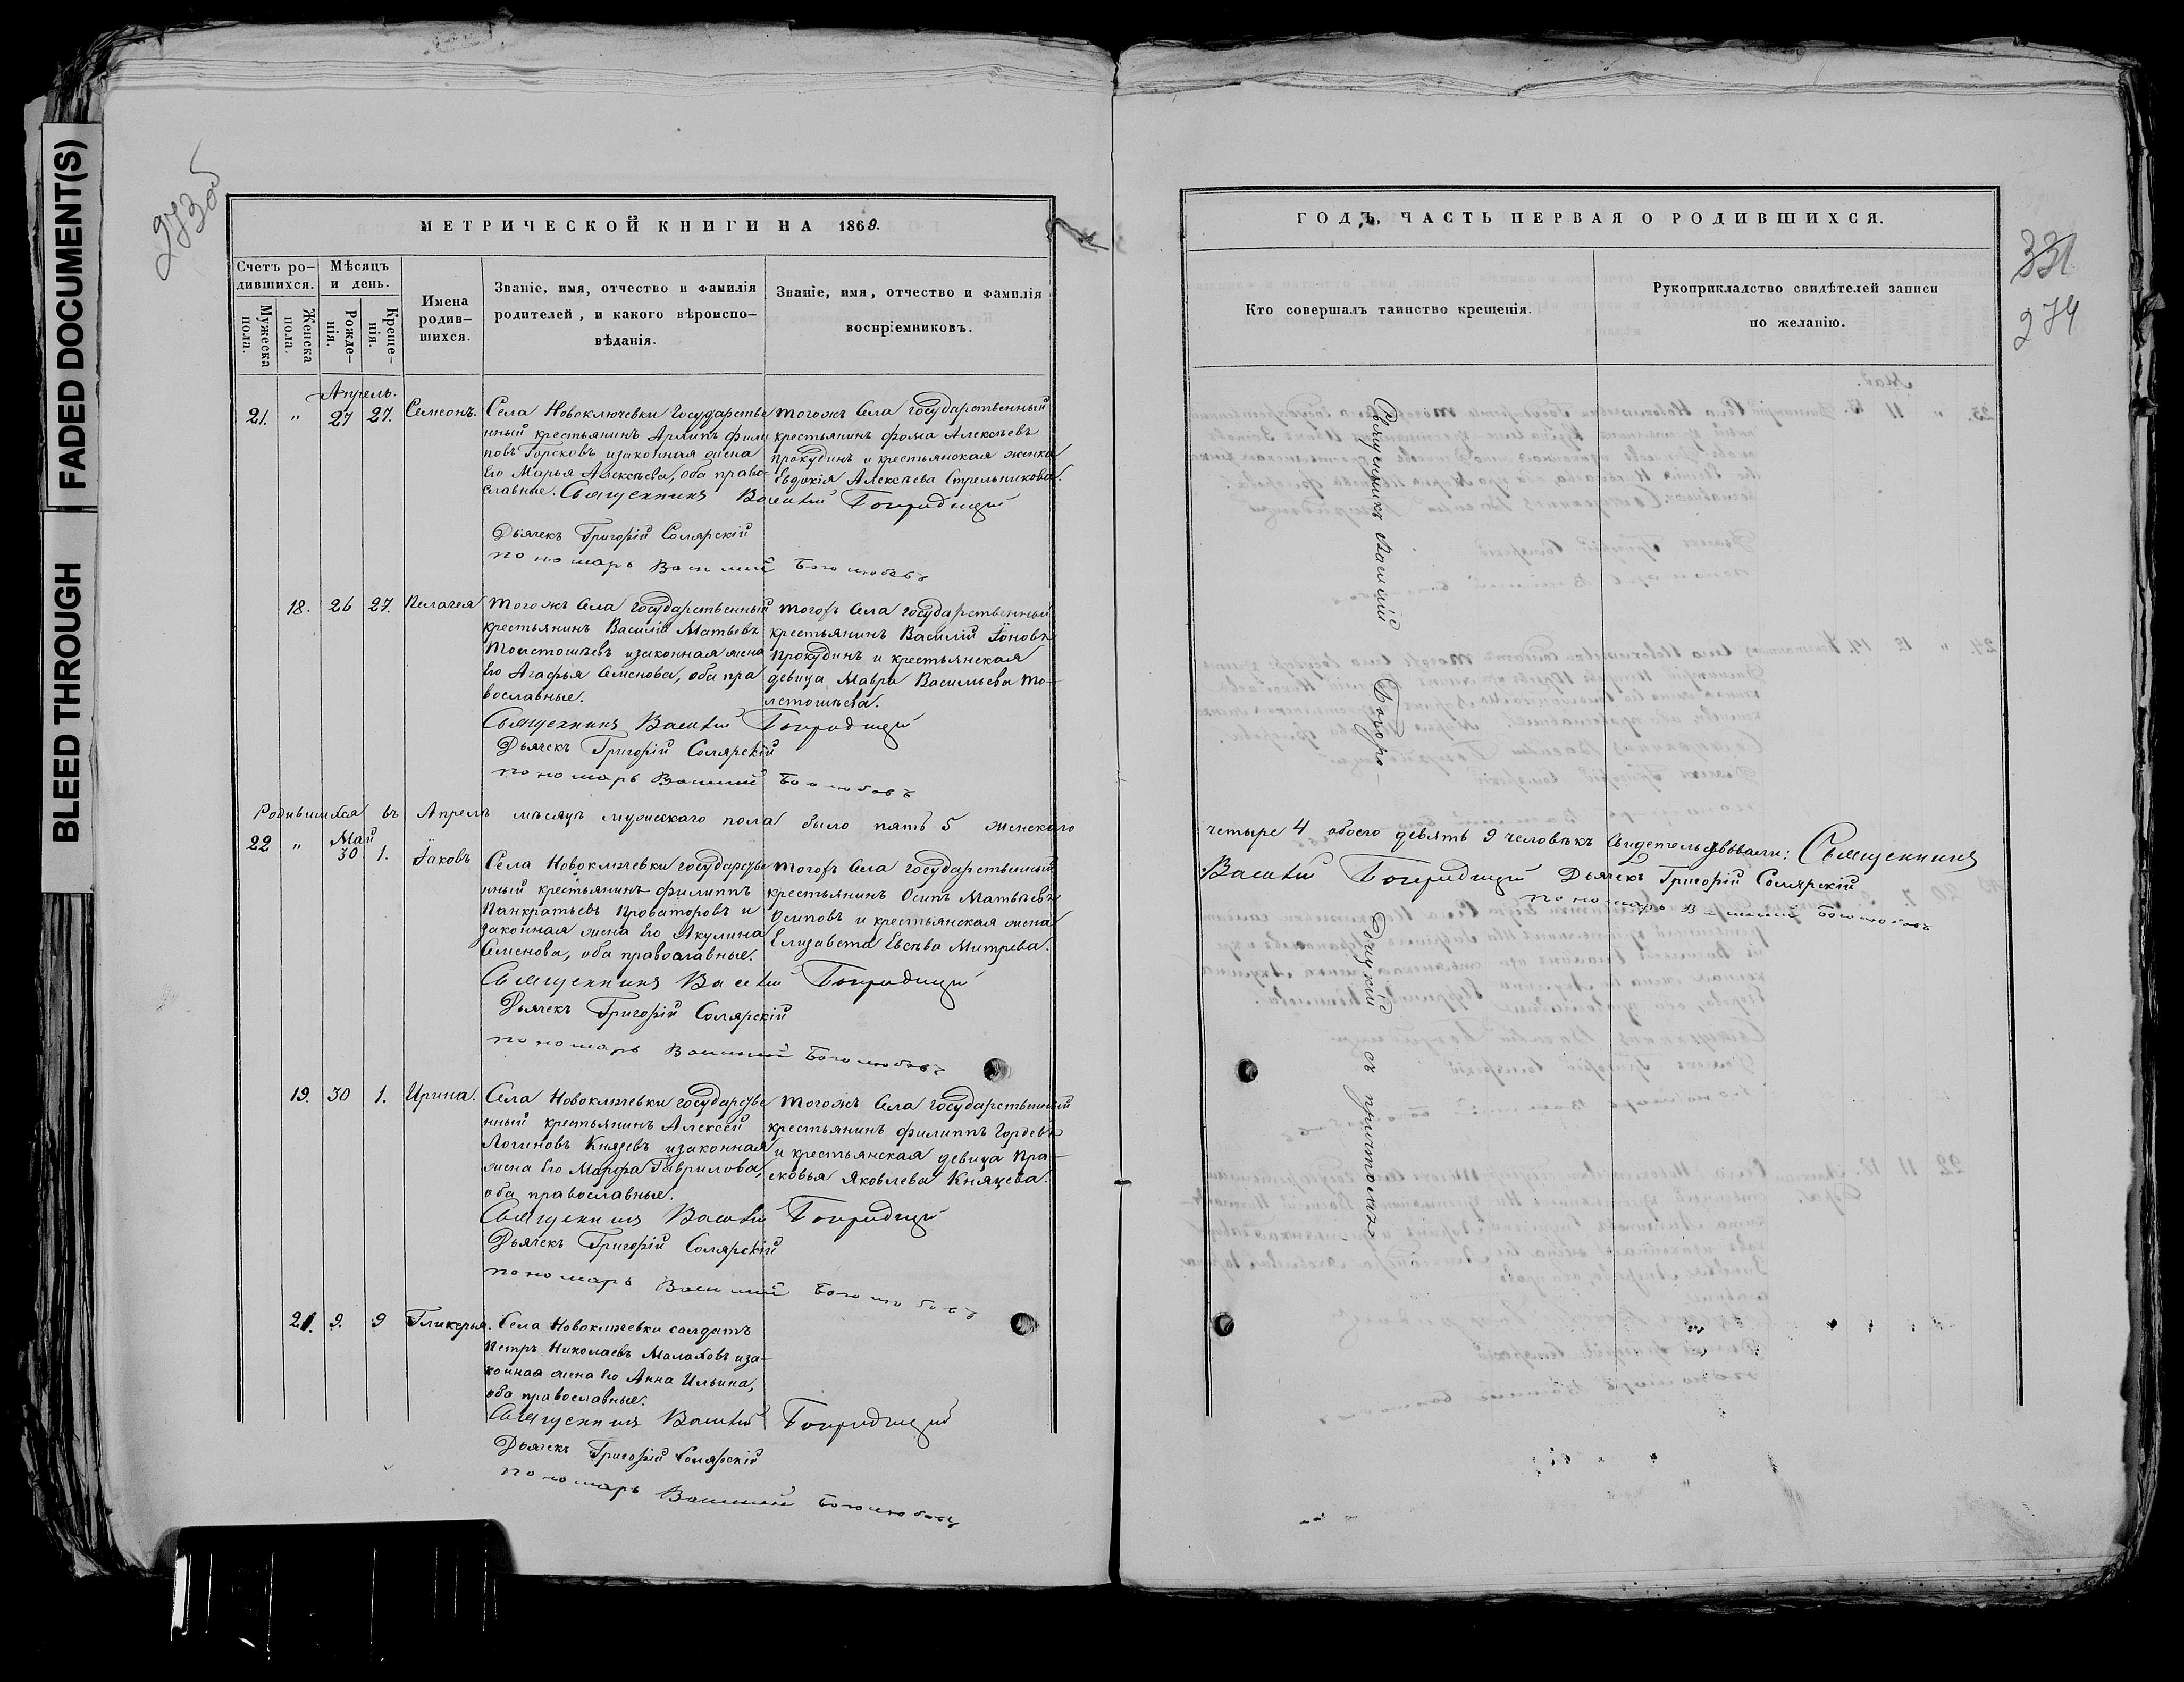 BLEED THROUGH
FADED DOCUMENT(S)
273об
МЕТРИЧЕСКОЙ КНИГИ НА 1869.
Счетъ ро-
дившихся.
Мужеска
пола.
Женска
пола.
Мѣсяцъ
и день.
Рожде-
нія.
Креще-
нія.
Имена
родив-
шихся.
Званіе, имя, отчество и фамилія
родителей, и какого вѣроиспо-
вѣданія.
Званіе, имя, отчество и фамилія
воспріемниковъ.
Апрель.
21. " 27 27. Семеонъ.
Села Новоключевки Государстве
нный крестьянинъ Архипъ Фили
повъ Горсковъ изаконная жена
его Марья Алексѣева, оба право-
славные.
тогожъ села государственный
крестьянинъ Фома Алексѣевъ
Прокудинъ и крестьянская женка
Евдокія Алексѣева Стрельникова.
Священникъ Василій Богородицкій
Дьячекъ Григорій Солярскій
пономарь Василій Боголюбовъ
18. 26 27. Пелагея
Тогожъ села государственный
крестьянинъ Василій Матвѣевъ
Толстошѣевъ изаконная жена
его Агафья Семенова, оба пра
вославные.
тогожъ села государственный
крестьянинъ Василій Іоновъ
Прокудинъ и крестьянская
девица Мавра Васильева То-
лстошѣева.
Священникъ Василій Богородицкій
Дьячекъ Григорій Солярскій
пономарь Василій Боголюбовъ
Родившихся въ Апрелѣ мѣсяцѣ мужескаго пола было пять 5 женскаго
Май
22 " 30 1. Іаковъ
Села Новоключевки государстве
нный крестьянинъ Филиппъ
Панкратьевъ Проваторовъ и
законная жена его Акулина
Семенова, оба православные.
тогожъ села государственный
крестьянинъ Осипъ Матвѣевъ
Осиповъ и крестьянская жена
Елизавета Евсѣва Митрева.
Священникъ Василій Богородицкій
Дьячекъ Григорій Солярскій
пономарь Василій Боголюбовъ
19. 30 1. Ирина.
Села Новоключевки государстве
нный крестьянинъ Алексей
Логиновъ Князевъ изаконная
жена его Марфа Гаврилова,
оба православные.
тогожъ села государственный
крестьянинъ Филиппъ Гордевъ
и крестьянская девица Пра-
сковья Яковлева Князева.
Священникъ Василій Богородицкій
Дьячекъ Григорій Солярскій
пономарь Василій Боголюбовъ
21. 9. 9 Гликерья.
Села Новоключевки салдатъ
Петръ Николаевъ Малаховъ иза-
конная жена его Анна Ильина,
оба православные.
Священникъ Василій Богородицкій
Дьячекъ Григорій Солярскій
пономарь Василій Боголюбовъ
ГОДЪ, ЧАСТЬ ПЕРВАЯ О РОДИВШИХСЯ.
331
274
Кто совершалъ таинство крещенія.
Рукоприкладство свидѣтелей записи
по желанію.
Священникъ Василій Богоро-
дицкій съ причтомъ
четыре 4 обоего девять 9 человѣкъ Свидетельствовали: Священникъ
Василій Богородицкій Дьячекъ Григорій Солярскій
пономарь Василій Боголюбовъ